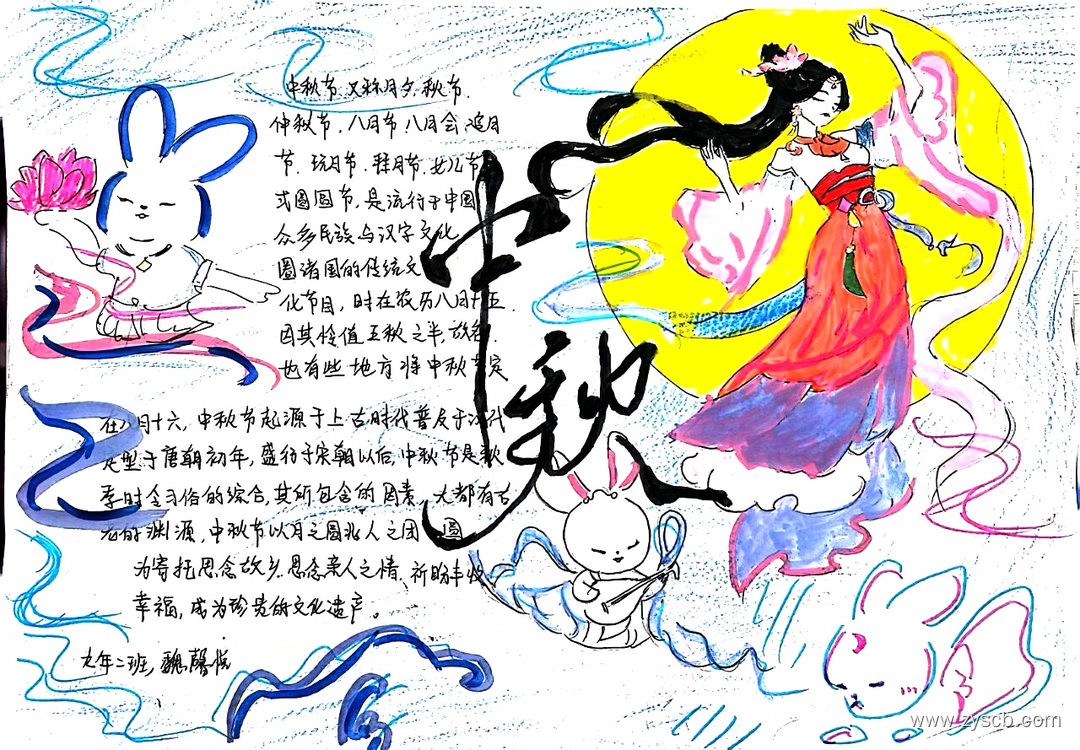 中秋节.又称月夕.秋节.
仲秋节.八月节八月会.追月
节.玩月节.拜月节.女儿节
或团圆节.是流行于中国
众多民族与汉字文化
圈诸国的传统文
化节日,时在农历八月十五.
因其恰值三秋之半,故名.
也有些地方将中秋节定
在八月十六,中秋节起源于上古时代普及于汉代
定型于唐朝初年,盛行于宋朝以后,中秋节是秋
季时令习俗的综合,其所包含的因素.大都有古
老的渊源,中秋节以月之圆兆人之团 圆
为寄托思念故乡.思念亲人之情.祈盼丰收
幸福,成为珍贵的文化遗产。
九年二班,魏馨悦
中秋
www.zyscb.com